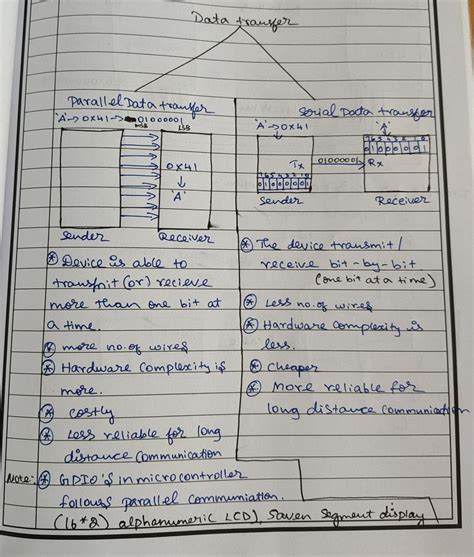 Data transfer
Parallel Data transfer
'A'→0x41→01000001
MSB LSB
0x41
↓
'A'
Sender Receiver
⊛ Device is able to
transmit (or) recieve
more than one bit at
a time.
⊛ more no. of wires
⊛ Hardware complexity is
more.
⊛ costly
⊛ Less reliable for long
distance communication
Note:- ⊛ GPIO'S in microcontroller
follows parallel communiation.
(16*2) alphanumeric LCD), Seven segment display
Serial Data transfer
'A'→0x41
'A'
7 6 5 4 3 2 1 0
0 1 0 0 0 0 0 1
Tx 01000001 → Rx
0 1 0 0 0 0 0 1
Sender Receiver
⊛ The device transmit /
receive bit-by-bit
(one bit at a time)
⊛ Less no. of wires
⊛ Hardware complexity is
less.
⊛ cheaper
⊛ More reliable for
long distance communication